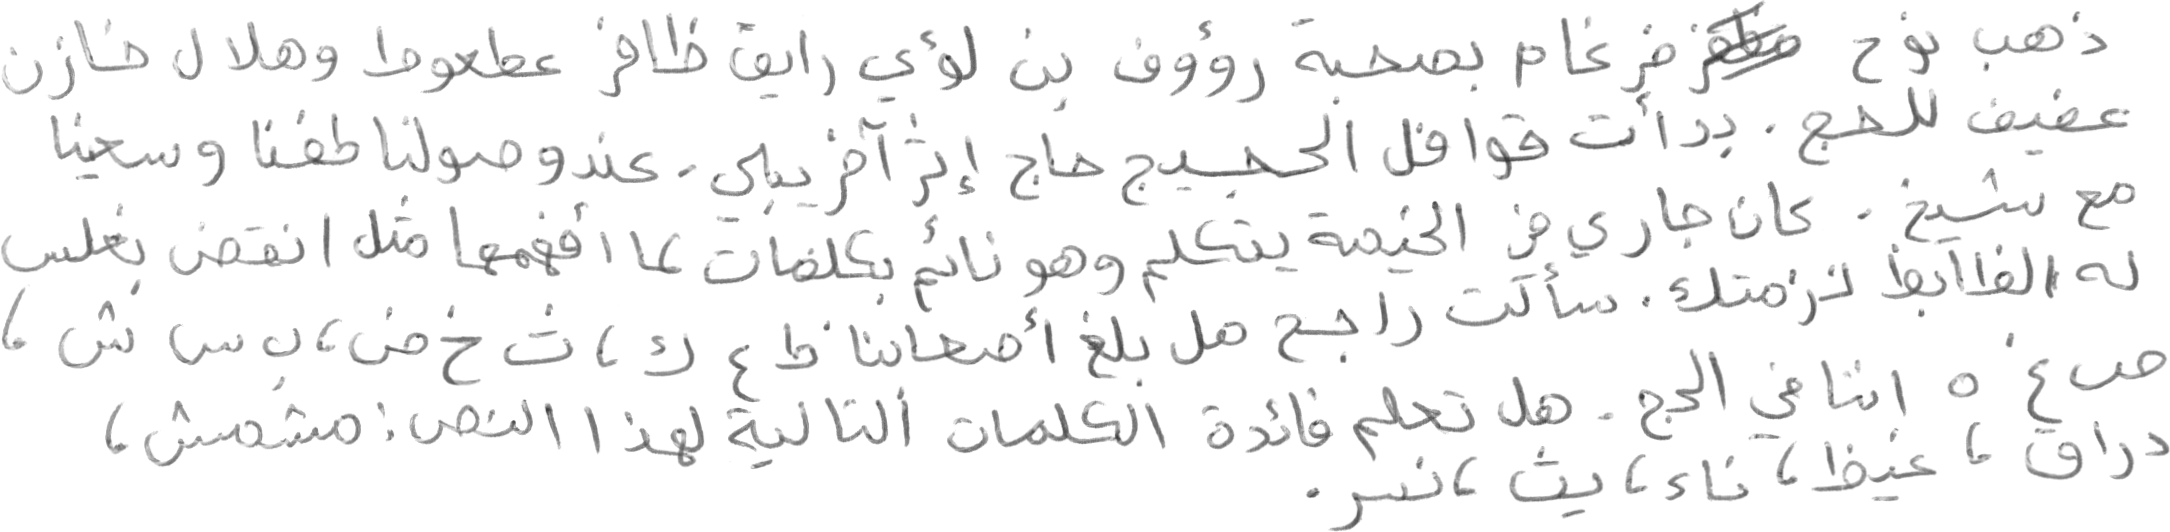 ذهب نوح ضرغام بصحبة رؤوف بن لؤي رايق ظافر عطعوط وهلال خازن
عفيف للحج . بدأت قوافل الحجيج حاج إثر آخر يلبي . عند وصولنا طفنا وسعينا
مع شيخ . كان جاري في الخيمة يتكلم وهو نائم بكلمات لما أفهمها مثل انقض بغلس
له لزمتك . سألت راجح هل بلغ أصحابنا ظ ع ك ، ث خ ض ، ب س ش ،
ص غ ه إننا في الحج . هل تعلم فائدة الكلمات التالية لهذا النص : مشمش ،
دراق ، غيظ ، ناء ، يث ، نسر .